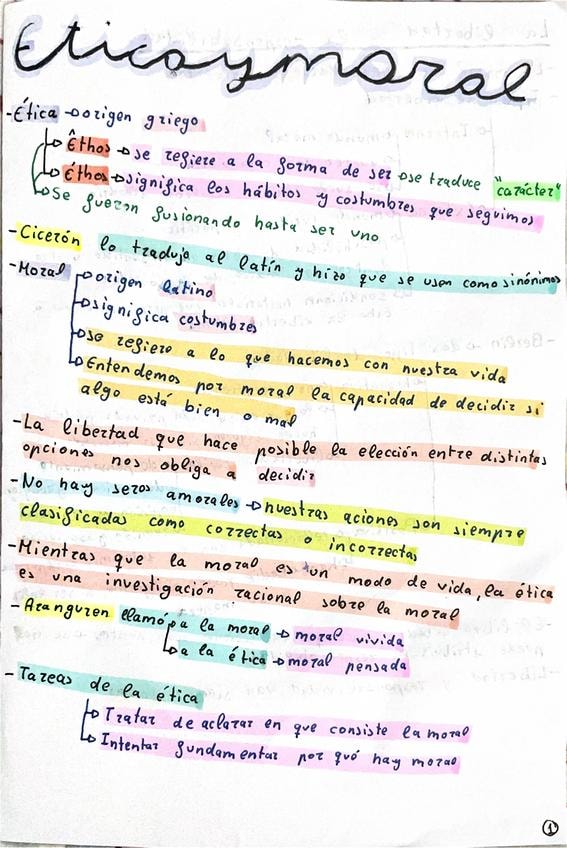 Etica y moral
-Ética → origen griego
Êthos → se refiere a la forma de ser → se traduce "carácter"
Éthos → significa los hábitos y costumbres que seguimos
Se fueron fusionando hasta ser uno
-Cicerón lo tradujo al latín y hizo que se usen como sinónimos
-Moral → origen latino
→ significa costumbres
→ se refiere a lo que hacemos con nuestra vida
→ Entendemos por moral la capacidad de decidir si
algo está bien o mal
-La libertad que hace posible la elección entre distintas
opciones nos obliga a decidir
-No hay seros amorales → nuestras aciones son siempre
clasificadas como correctas o incorrectas
-Mientras que la moral es un modo de vida, la ética
es una investigación racional sobre la moral
-Aranguren llamó → a la moral → moral vivida
→ a la ética → moral pensada
-Tareas de la ética
→ Tratar de aclarar en que consiste la moral
→ Intentar fundamentar por qué hay moral
1